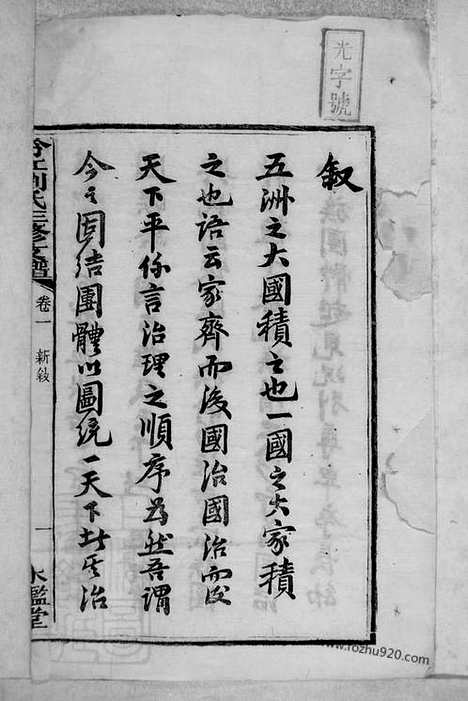 光字號
叙
五洲之大國積之也一國之大家積
之也語云家齊而後國治國治而後
天下平係言治理之順序為然吾謂
今之固結團體以圖統一天下者其治
劉氏三修支譜
卷一
新敘
一
水鑑堂
www.fozhu920.com